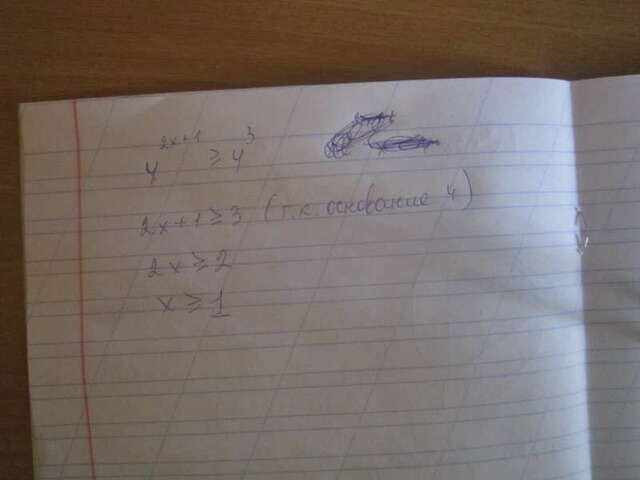 4^{2x+1} ≥ 4^3
2x+1≥3 (т.к. основание 4)
2x≥2
x≥1